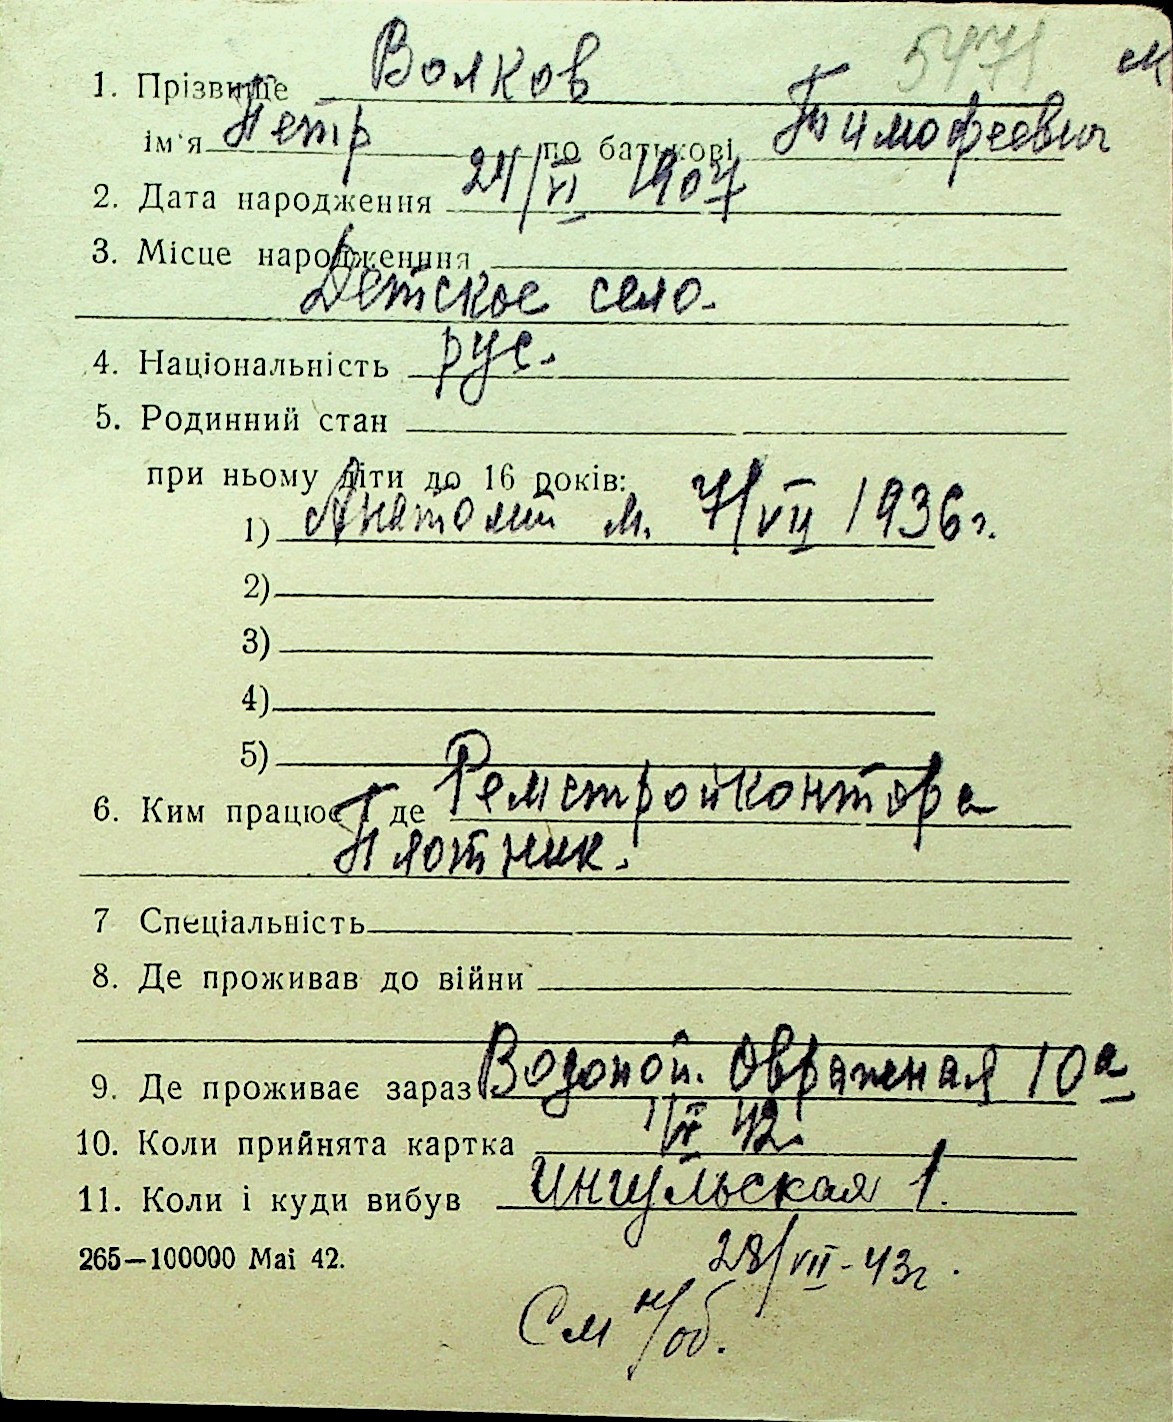 5471 м
1. Прізвище Волков
ім'я Петр по батькові Тимофеевич
2. Дата народження 24/VI 1907
3. Місце народженння
Детское село.
4. Національність рус.
5. Родинний стан
при ньому діти до 16 років:
1) Анатолий м. 7/VII 1936 г.
2)
3)
4)
5)
6. Ким працює і де Ремстройконтора
Плотник.
7 Спеціальність
8. Де проживав до війни
9. Де проживає зараз Водопой. Овражная 10а
10. Коли прийнята картка 42
11. Коли і куди вибув Ингульская 1.
265—100000 Маі 42.
28/VII-43г.
См н/об.